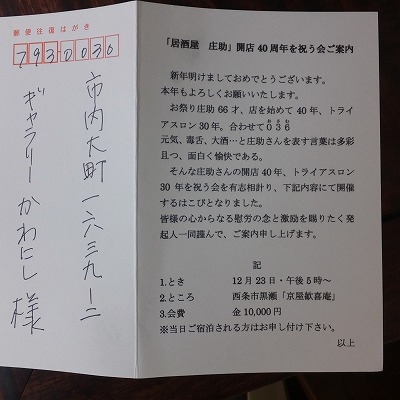 郵便往復はがき
7930030
市内大町一六三九ー二
ギャラリーかわにし様
「居酒屋 庄助」開店40周年を祝う会ご案内
新年明けましておめでとうございます。
本年もよろしくお願いいたします。
お祭り庄助66才、店を始めて40年、トライ
アスロン30年。合わせて036
元気、毒舌、大酒…と庄助さんを表す言葉は多彩
且つ、面白く愉快である。
そんな庄助さんの開店40年、トライアスロン
30年を祝う会を有志相計り、下記内容にて開催
するはこびとなりました。
皆様の心からなる慰労の念と激励を賜りたく発
起人一同謹んで、ご案内申し上げます。
記
1.とき 12月23日・午後5時～
2.ところ 西条市黒瀬「京屋歓喜庵」
3.会費 金10,000円
※当日ご宿泊される方はお申し付け下さい。
以上